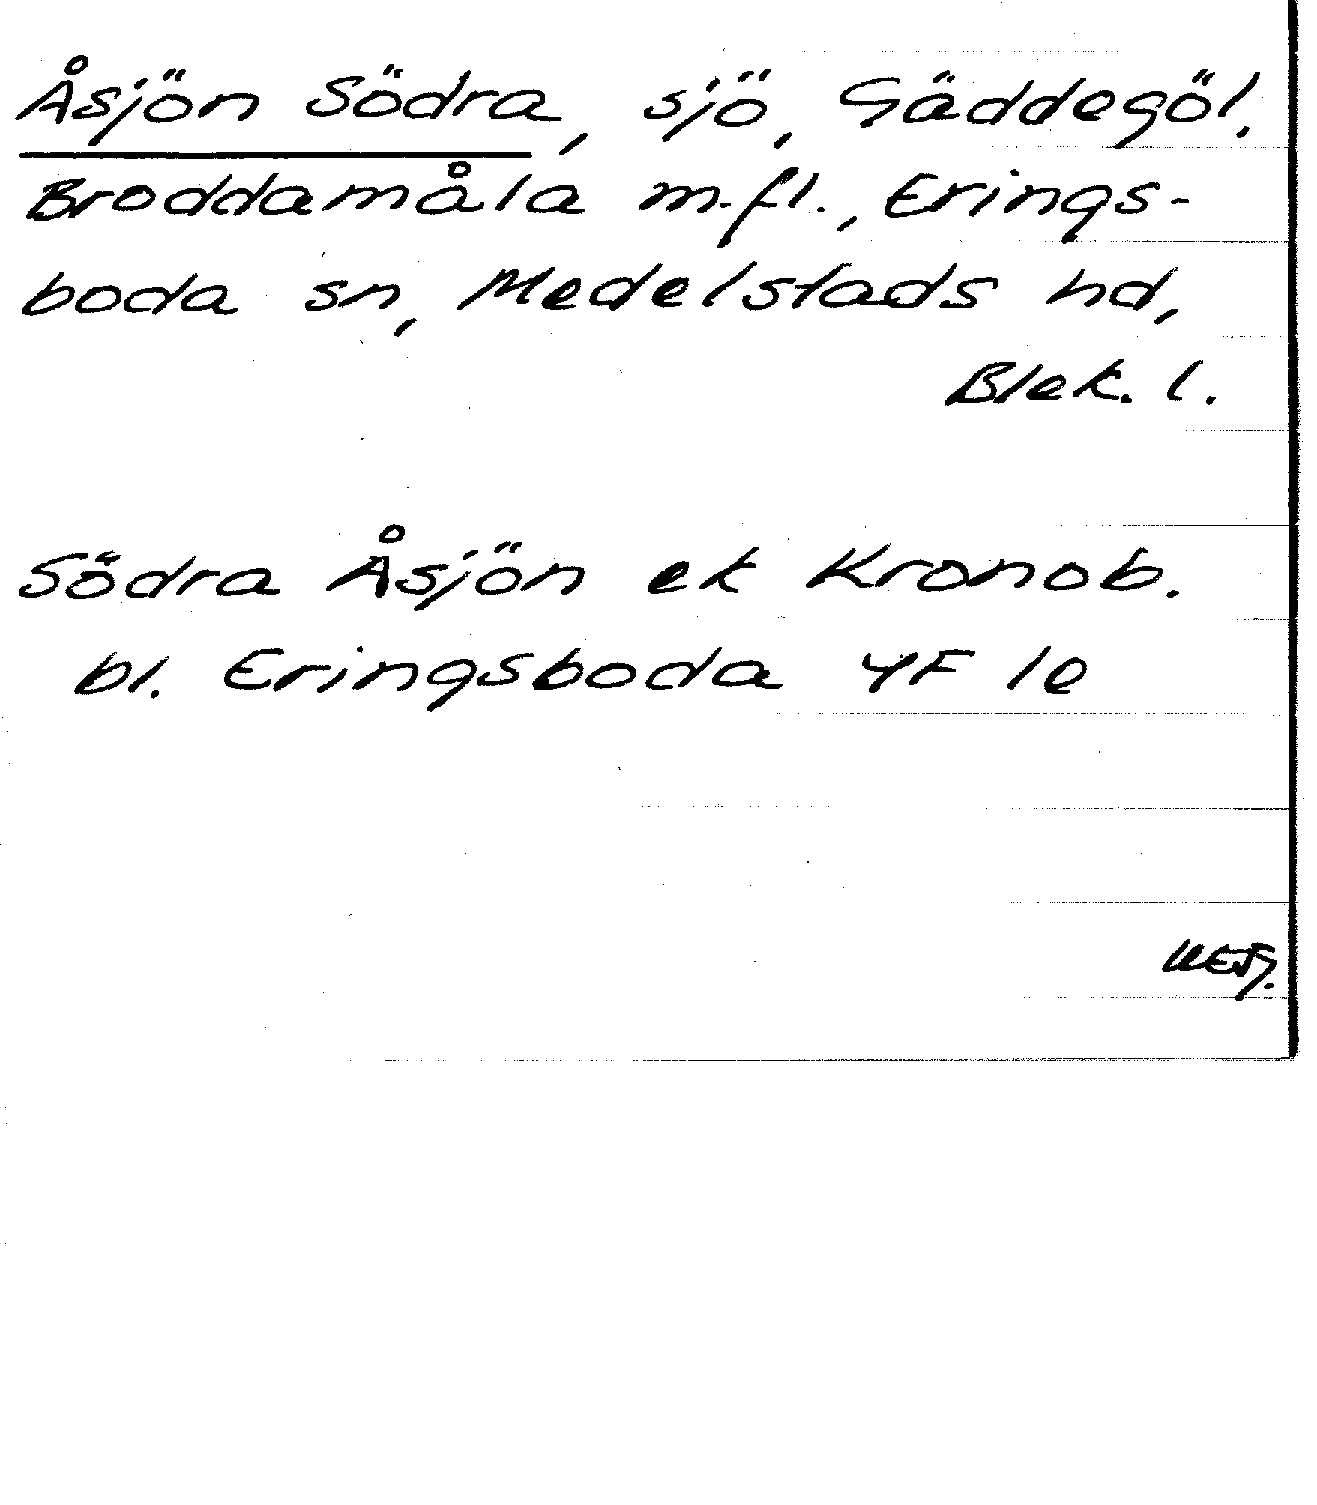 Åsjön Södra, sjö, Gäddegöl,
Broddamåla m.fl., Erings-
boda sn, Medelstads hd,
Blek. l.
Södra Åsjön ek Kronob.
bl. Eringsboda 4F 1e